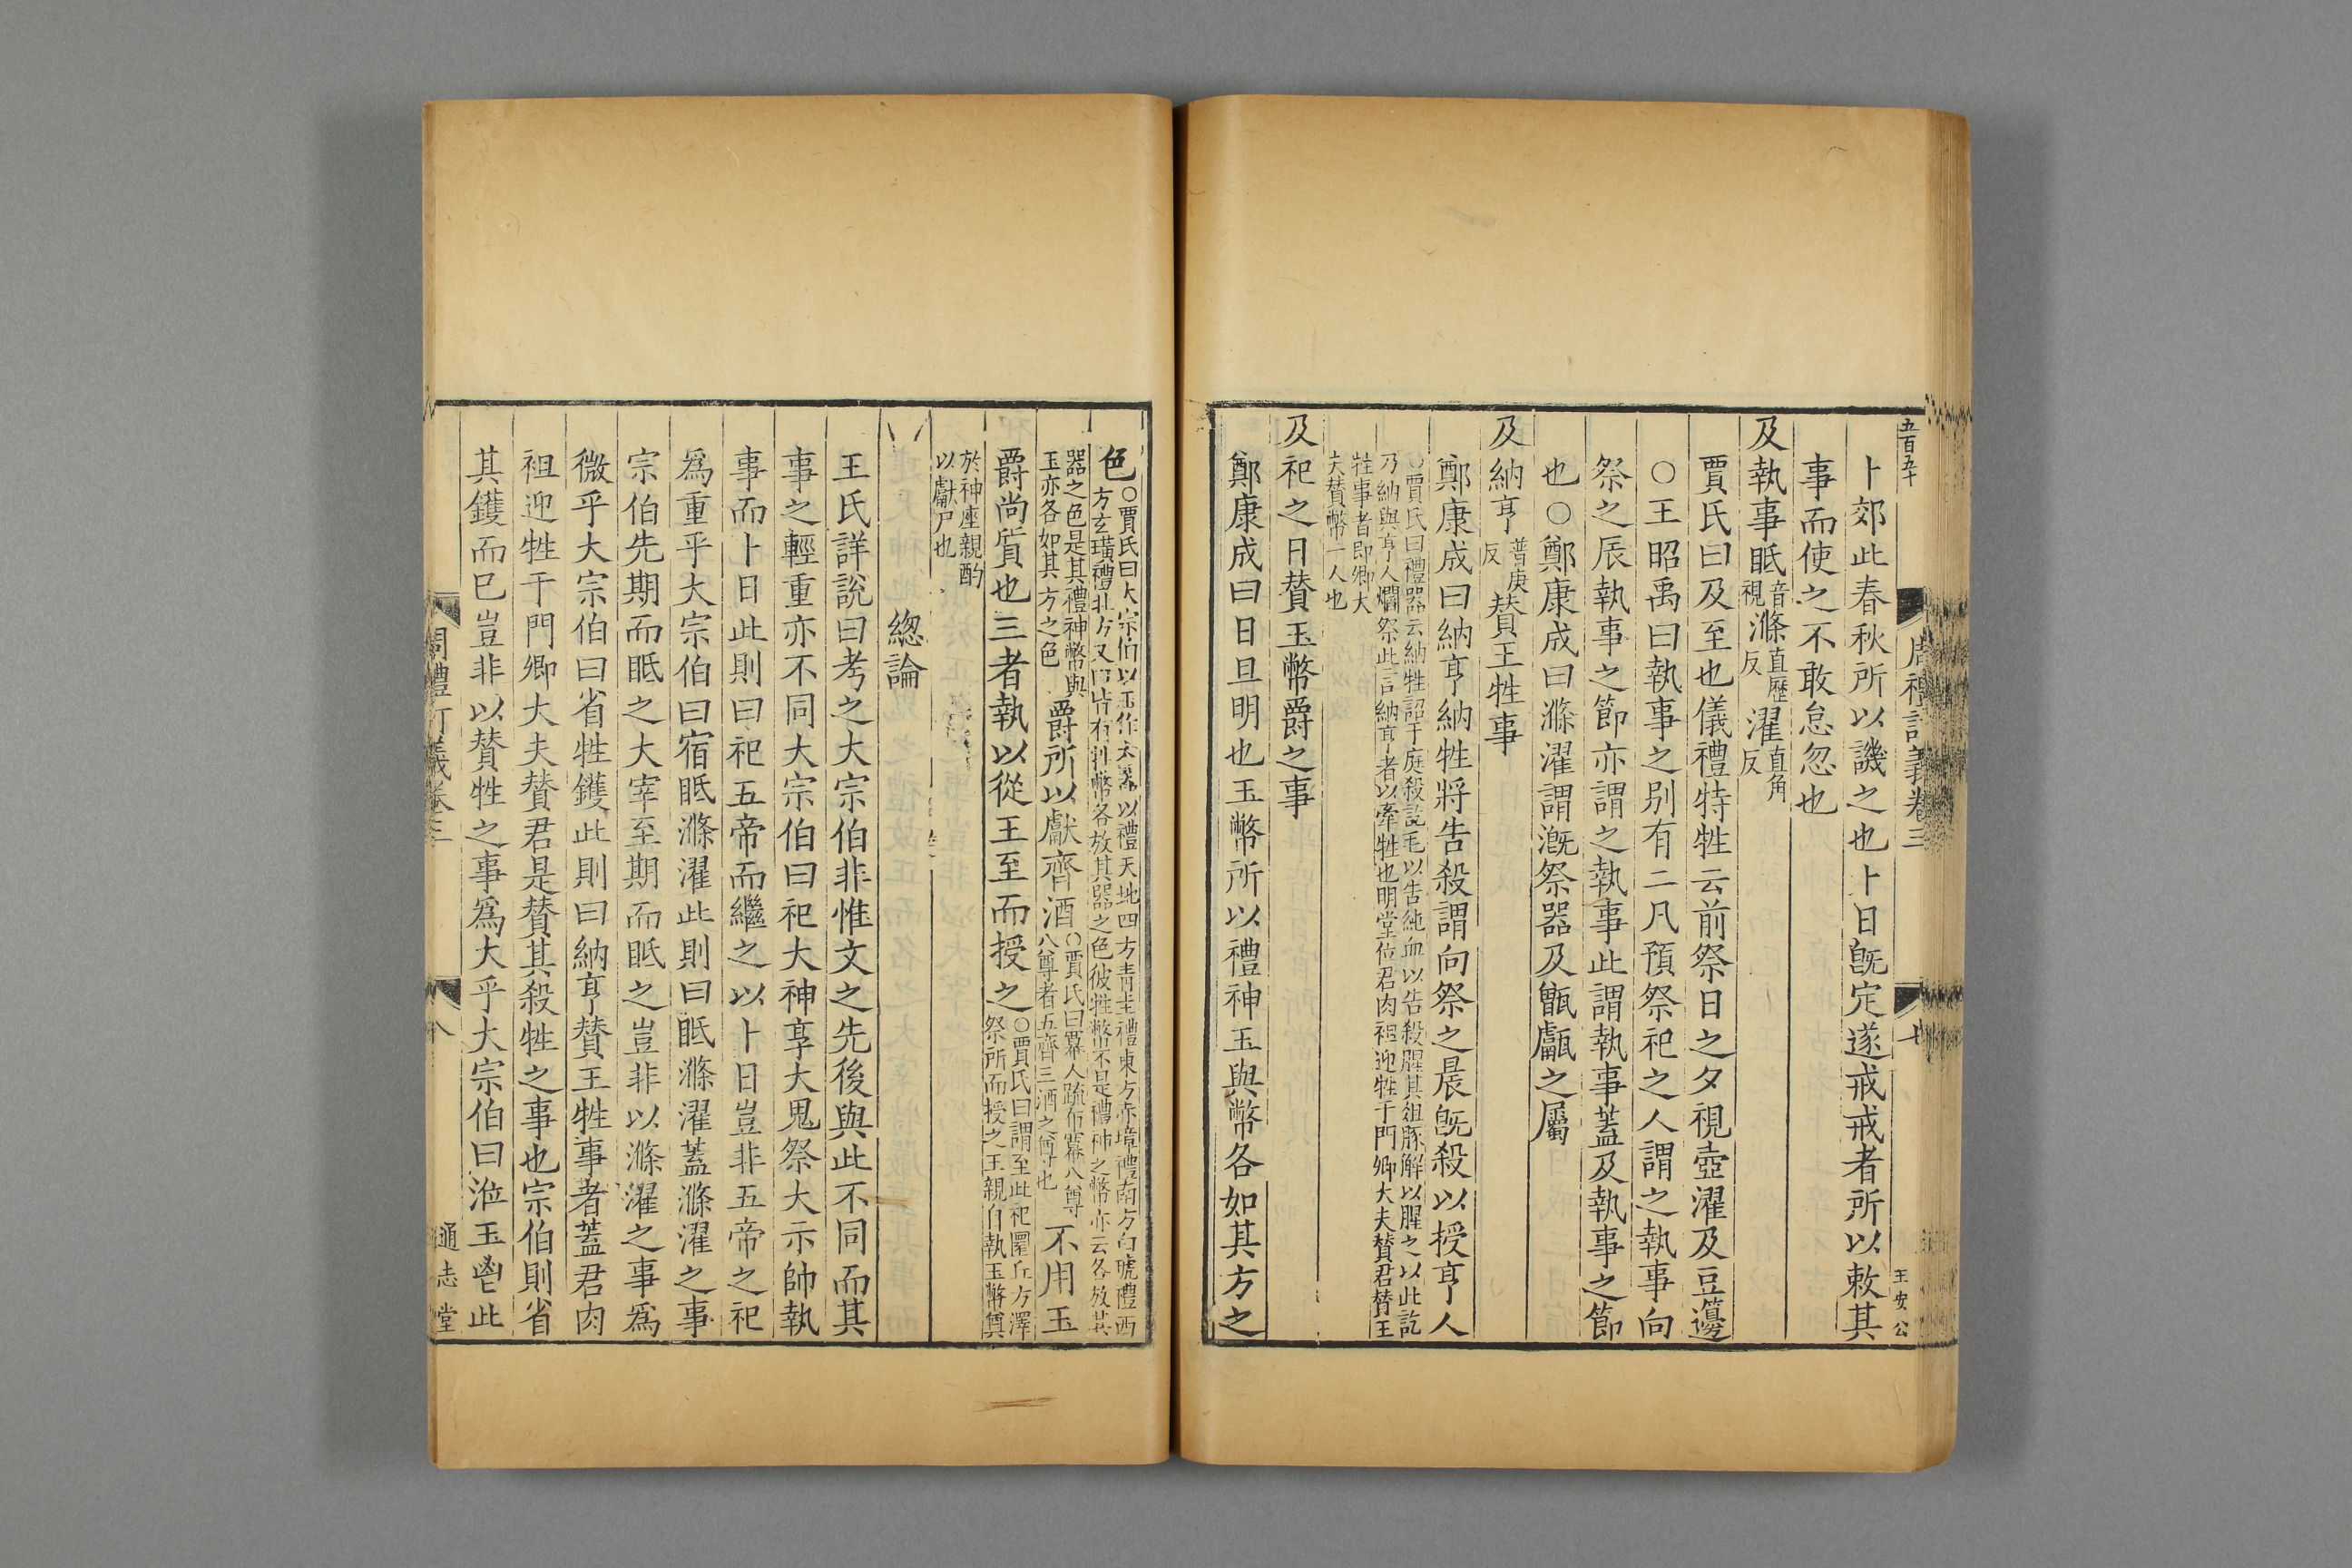 五百五十
周禮訂義卷三
七
王安公
卜郊此春秋所以譏之也卜日旣定遂戒戒者所以敕其
事而使之不敢怠忽也
及執事眡音視滌直歷反濯直角反
賈氏曰及至也儀禮特牲云前祭日之夕視壺濯及豆籩
○王昭禹曰執事之別有二凡預祭祀之人謂之執事向
祭之辰執事之節亦謂之執事此謂執事蓋及執事之節
也○鄭康成曰滌濯謂漑祭器及甑甗之屬
及納亨普庚反贊王牲事
鄭康成曰納亨納牲將告殺謂向祭之晨旣殺以授亨人
○賈氏曰禮器云納牲詔于庭殺訖毛以告純血以告殺腥其俎豚解以腥之以此訖
乃納與亨人爓祭此言納亨者以牽牲也明堂位君肉袒迎牲于門卿大夫贊君贊王
牲事者卽卿大
夫贊幣一人也
及祀之日贊玉幣爵之事
鄭康成曰日旦明也玉幣所以禮神玉與幣各如其方之
色○賈氏曰大宗伯以玉作六器以禮天地四方靑圭禮東方赤璋禮南方白琥禮西
方玄璜禮北方又曰皆有牲幣各放其器之色彼牲幣不是禮神之幣亦云各放其
器之色是其禮神幣與
玉亦各如其方之色
爵所以獻齊酒○賈氏曰冪人疏布冪八尊
八尊者五齊三酒之尊也
不用玉
爵尚質也三者執以從王至而授之○賈氏曰謂至此祀圜丘方澤
祭所而授之王親自執玉幣奠
於神座親酌
以獻尸也
緫論
王氏詳說曰考之大宗伯非惟文之先後與此不同而其
事之輕重亦不同大宗伯曰祀大神享大鬼祭大示帥執
事而卜日此則曰祀五帝而繼之以卜日豈非五帝之祀
爲重乎大宗伯曰宿眡滌濯此則曰眡滌濯蓋滌濯之事
宗伯先期而眡之大宰至期而眡之豈非以滌濯之事爲
微乎大宗伯曰省牲鑊此則曰納亨贊王牲事者蓋君肉
袒迎牲于門卿大夫贊君是贊其殺牲之事也宗伯則省
其鑊而巳豈非以贊牲之事爲大乎大宗伯曰涖玉鬯此
周禮訂義卷三
八
通志堂